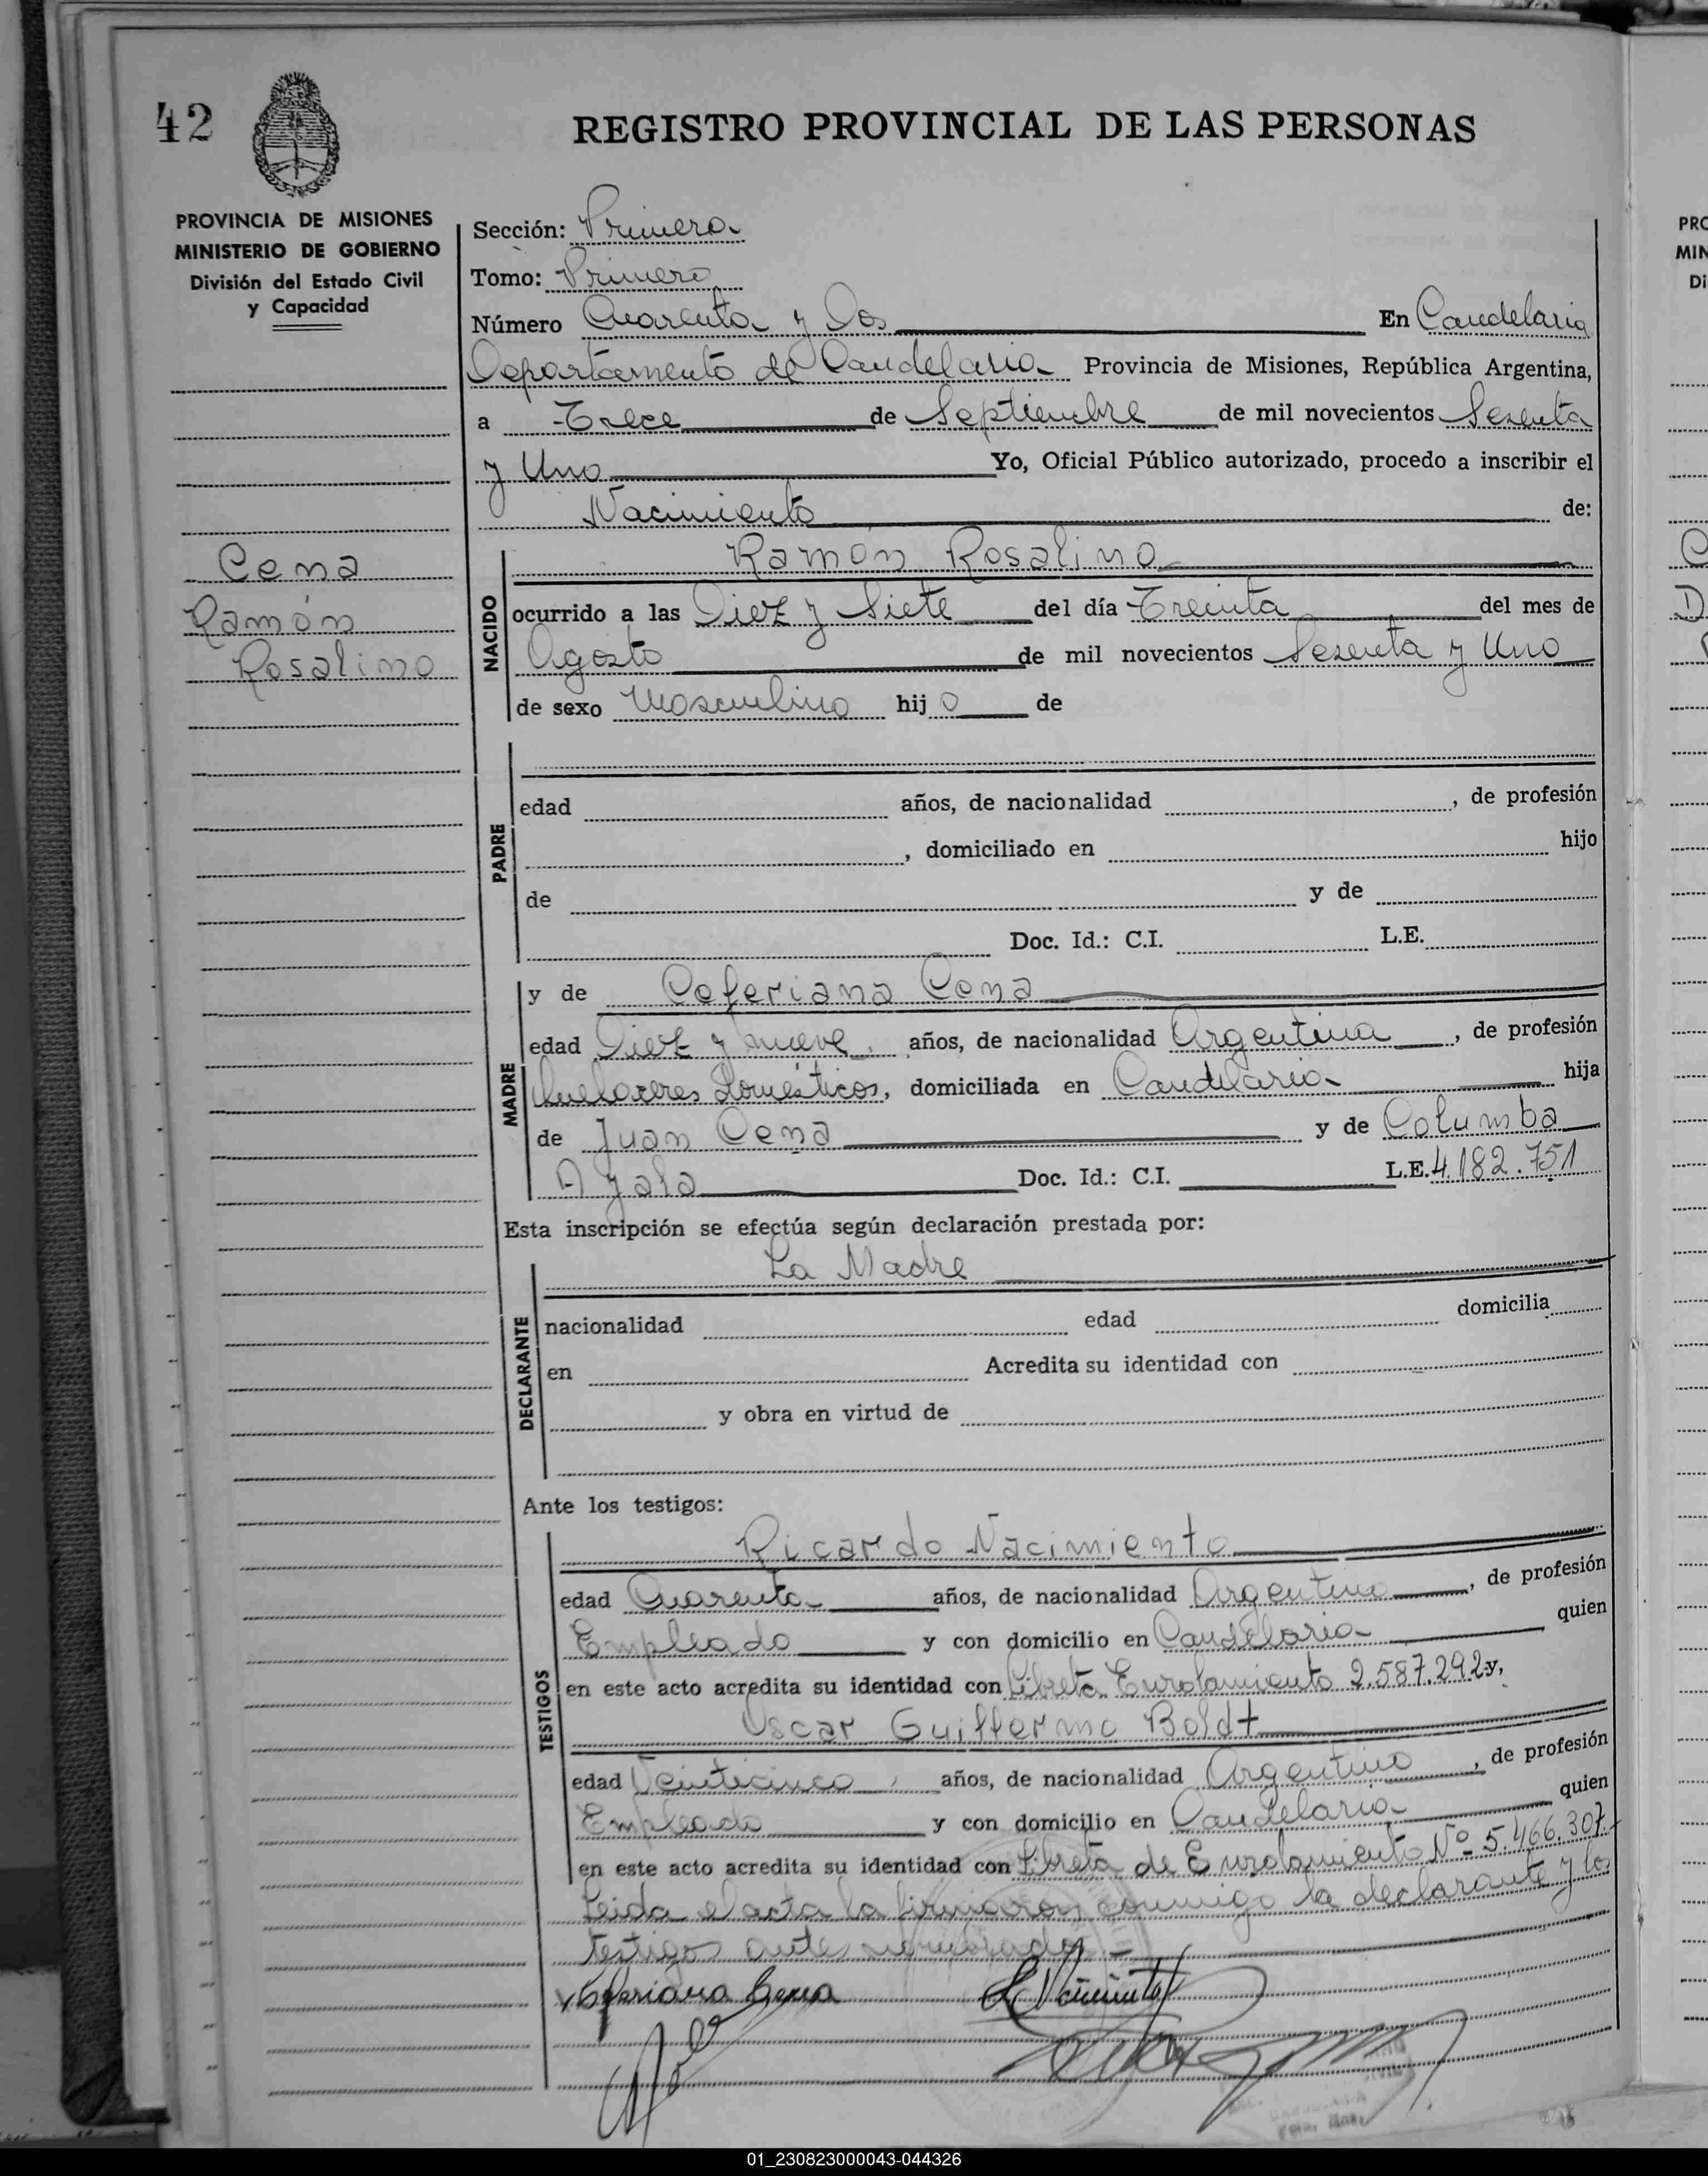 42
REGISTRO PROVINCIAL DE LAS PERSONAS
PROVINCIA DE MISIONES
MINISTERIO DE GOBIERNO
División del Estado Civil
y Capacidad
Cena
Ramón
Rosalino
Sección: Primera
Tomo: Primero
Número Cuarenta y Dos En Candelaria
Departamento de Candelaria Provincia de Misiones, República Argentina,
a Trece de Septiembre de mil novecientos Sesenta
y Uno Yo, Oficial Público autorizado, procedo a inscribir el
Nacimiento de:
NACIDO
Ramón Rosalino
ocurrido a las Diez y Siete del día Treinta del mes de
Agosto de mil novecientos Sesenta y Uno
de sexo Masculino hijo de
PADRE
edad años, de nacionalidad , de profesión
, domiciliado en hijo
de y de
Doc. Id.: C.I. L.E.
MADRE
y de Ceferiana Cena
edad Diez y nueve años, de nacionalidad Argentina, de profesión
Quehaceres Domésticos, domiciliada en Candelaria hija
de Juan Cena y de Columba
Ayala Doc. Id.: C.I. L.E. 4.182.751
Esta inscripción se efectúa según declaración prestada por:
DECLARANTE
La Madre
nacionalidad edad domicilia
en Acredita su identidad con
y obra en virtud de
Ante los testigos:
TESTIGOS
Ricardo Nacimiento
edad Cuarenta años, de nacionalidad Argentino, de profesión
Empleado y con domicilio en Candelaria quien
en este acto acredita su identidad con Libreta Enrolamiento 2.587.292 y,
Oscar Guillermo Boldt
edad Veinticinco, años, de nacionalidad Argentino, de profesión
Empleado y con domicilio en Candelaria quien
en este acto acredita su identidad con Libreta de Enrolamiento Nº 5.466.307.
Leida el acta la firmaron conmigo la declarante y los
testigos antes nombrados.-
Ceferiana Cena
R Nacimiento
PRO
MIN
Di
01_230823000043-044326